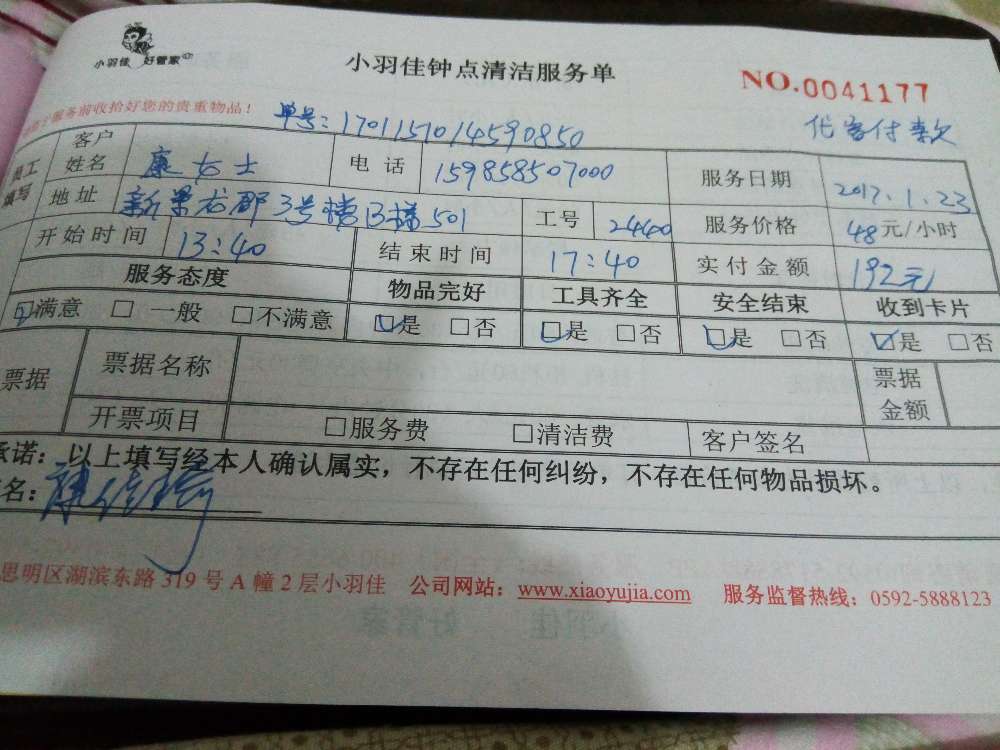 小羽佳 好管家
小羽佳钟点清洁服务单
NO.0041177
服务前收拾好您的贵重物品!
单号:1701151014590850
代客付款
员工填写
客户姓名 廉女士 电话 15985857000 服务日期 2017.1.23
地址 新景龙郡3号楼B梯501 工号 2440 服务价格 48元/小时
开始时间 13:40 结束时间 17:40 实付金额 192元
服务态度 物品完好 工具齐全 安全结束 收到卡片
☑满意 □一般 □不满意 ☑是 □否 ☑是 □否 ☑是 □否 ☑是 □否
票据 票据名称 票据金额
开票项目 □服务费 □清洁费 客户签名
承诺:以上填写经本人确认属实,不存在任何纠纷,不存在任何物品损坏。
名:
思明区湖滨东路319号A幢2层小羽佳 公司网站:www.xiaoyujia.com 服务监督热线:0592-5888123